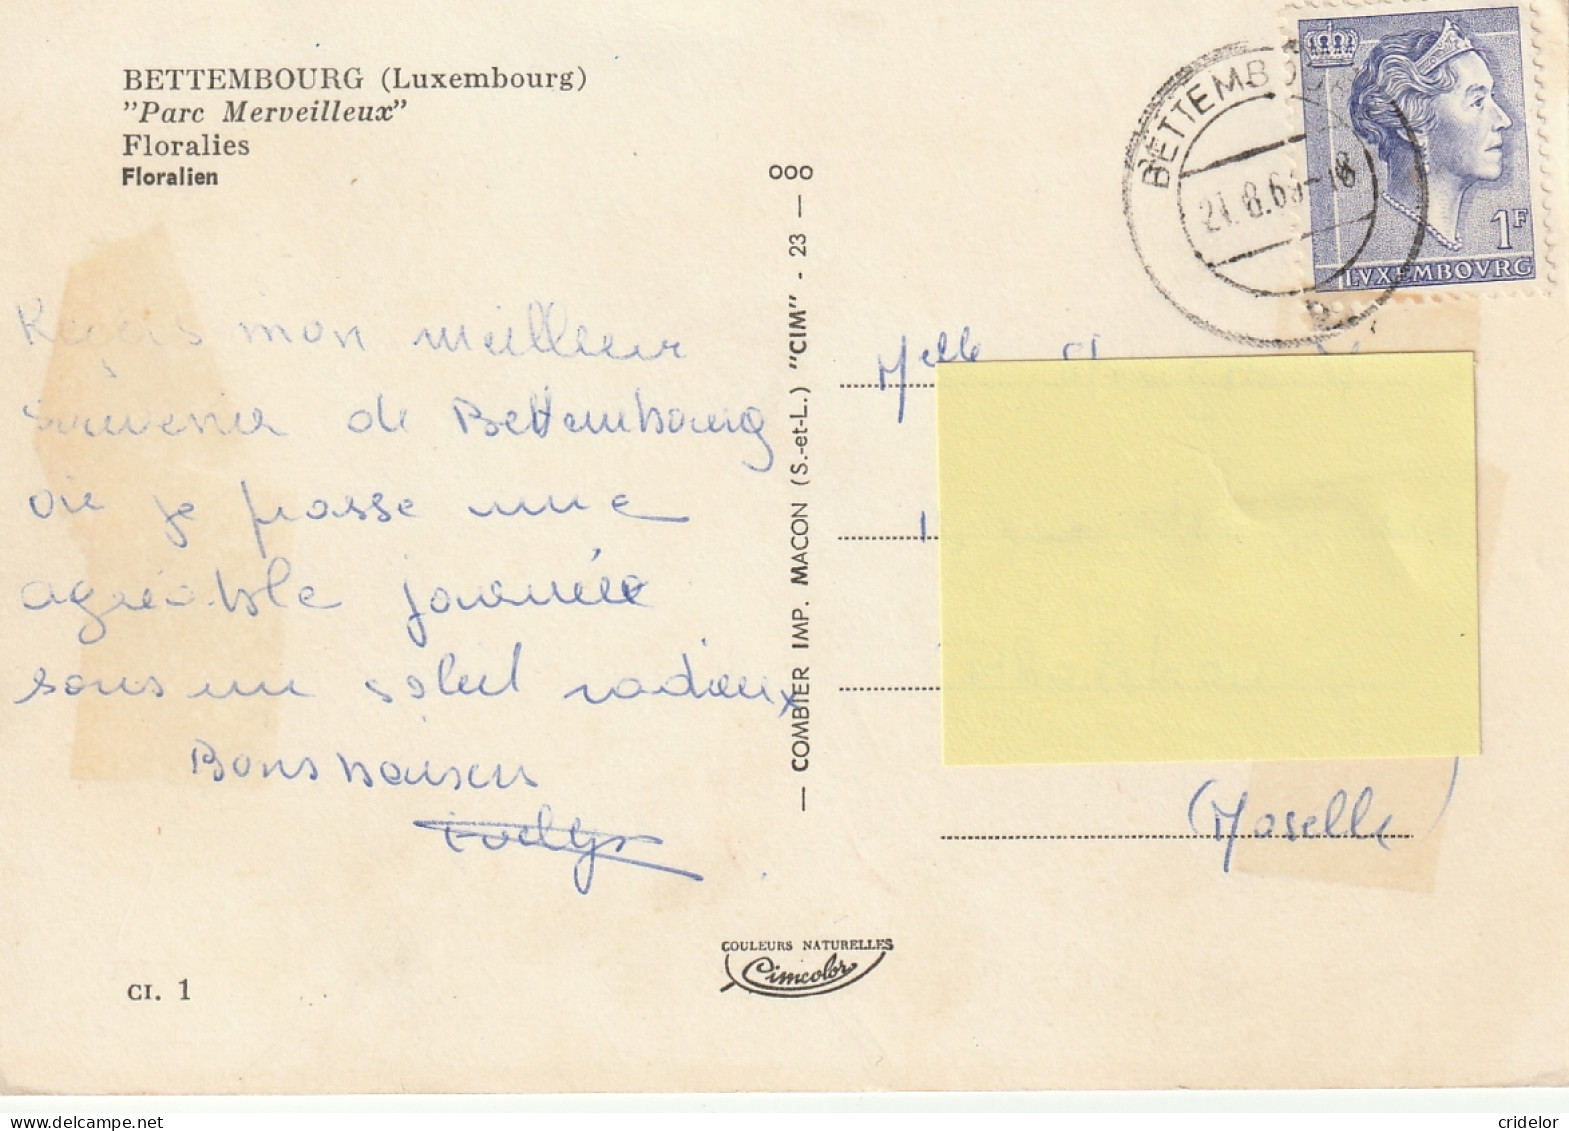 BETTEMBOURG (Luxembourg)
"Parc Merveilleux"
Floralies
Floralien
Reçois mon meilleur
souvenir de Bettembourg
où je passe une
agréable journée
sous un soleil radieux
Bons baisers
CI. 1
— COMBIER IMP. MACON (S.-et-L.) "CIM" - 23 — OOO
COULEURS NATURELLES
Cimcolor
BETTEMBOURG
1F
LVXEMBOVRG
Melle
(Moselle)
Publicité sur delcampe.net
cridelor